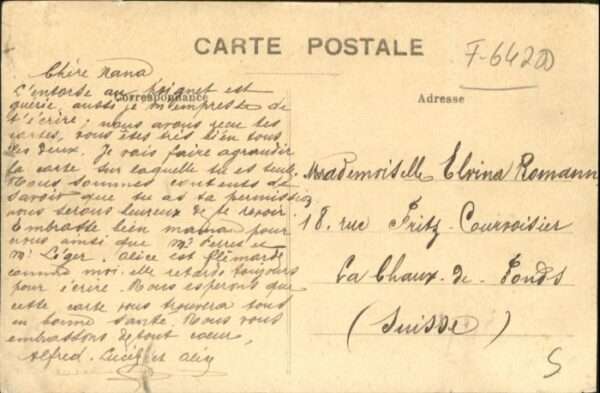 CARTE POSTALE
F-6420
Correspondance
Adresse
Chère Nana
L'entorse au poignet est
guérie, aussi je m'empresse de
t'écrire; nous avons reçu tes
cartes, vous êtes très bien tous
les deux. Je vais faire agrandir
la carte sur laquelle tu es seule.
Nous sommes contents de
savoir que tu as ta permission
nous serons heureux de te revoir
Embrasse bien maman pour
nous ainsi que Mr et
Mr Léger. Alice est flémarde
comme moi elle retarde toujours
pour écrire. Nous esperons que
cette carte vous trouvera tous
en bonne santé. Nous vous
embrassons de tout cœur,
Alfred. et
Mademoiselle Elvina Romann
18. rue Fritz. Courvoisier
La Chaux-de-Fonds
(Suisse)
S